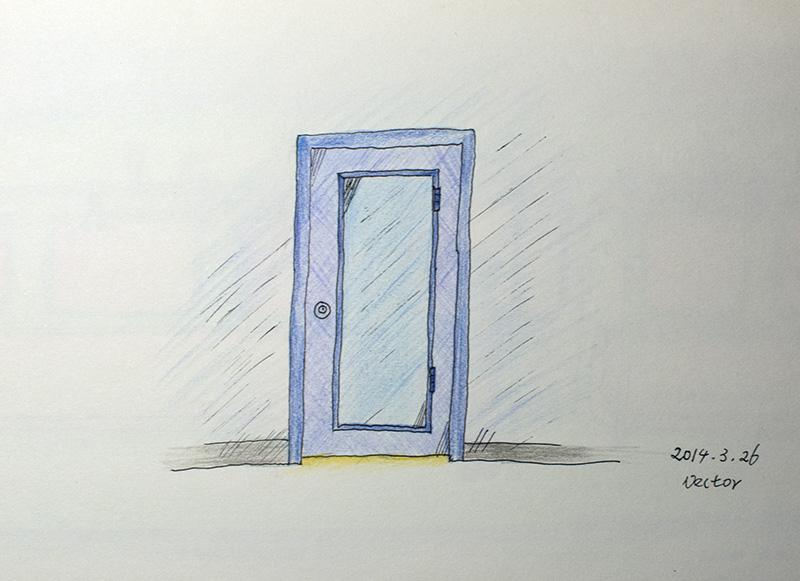 2014.3.26
Vector